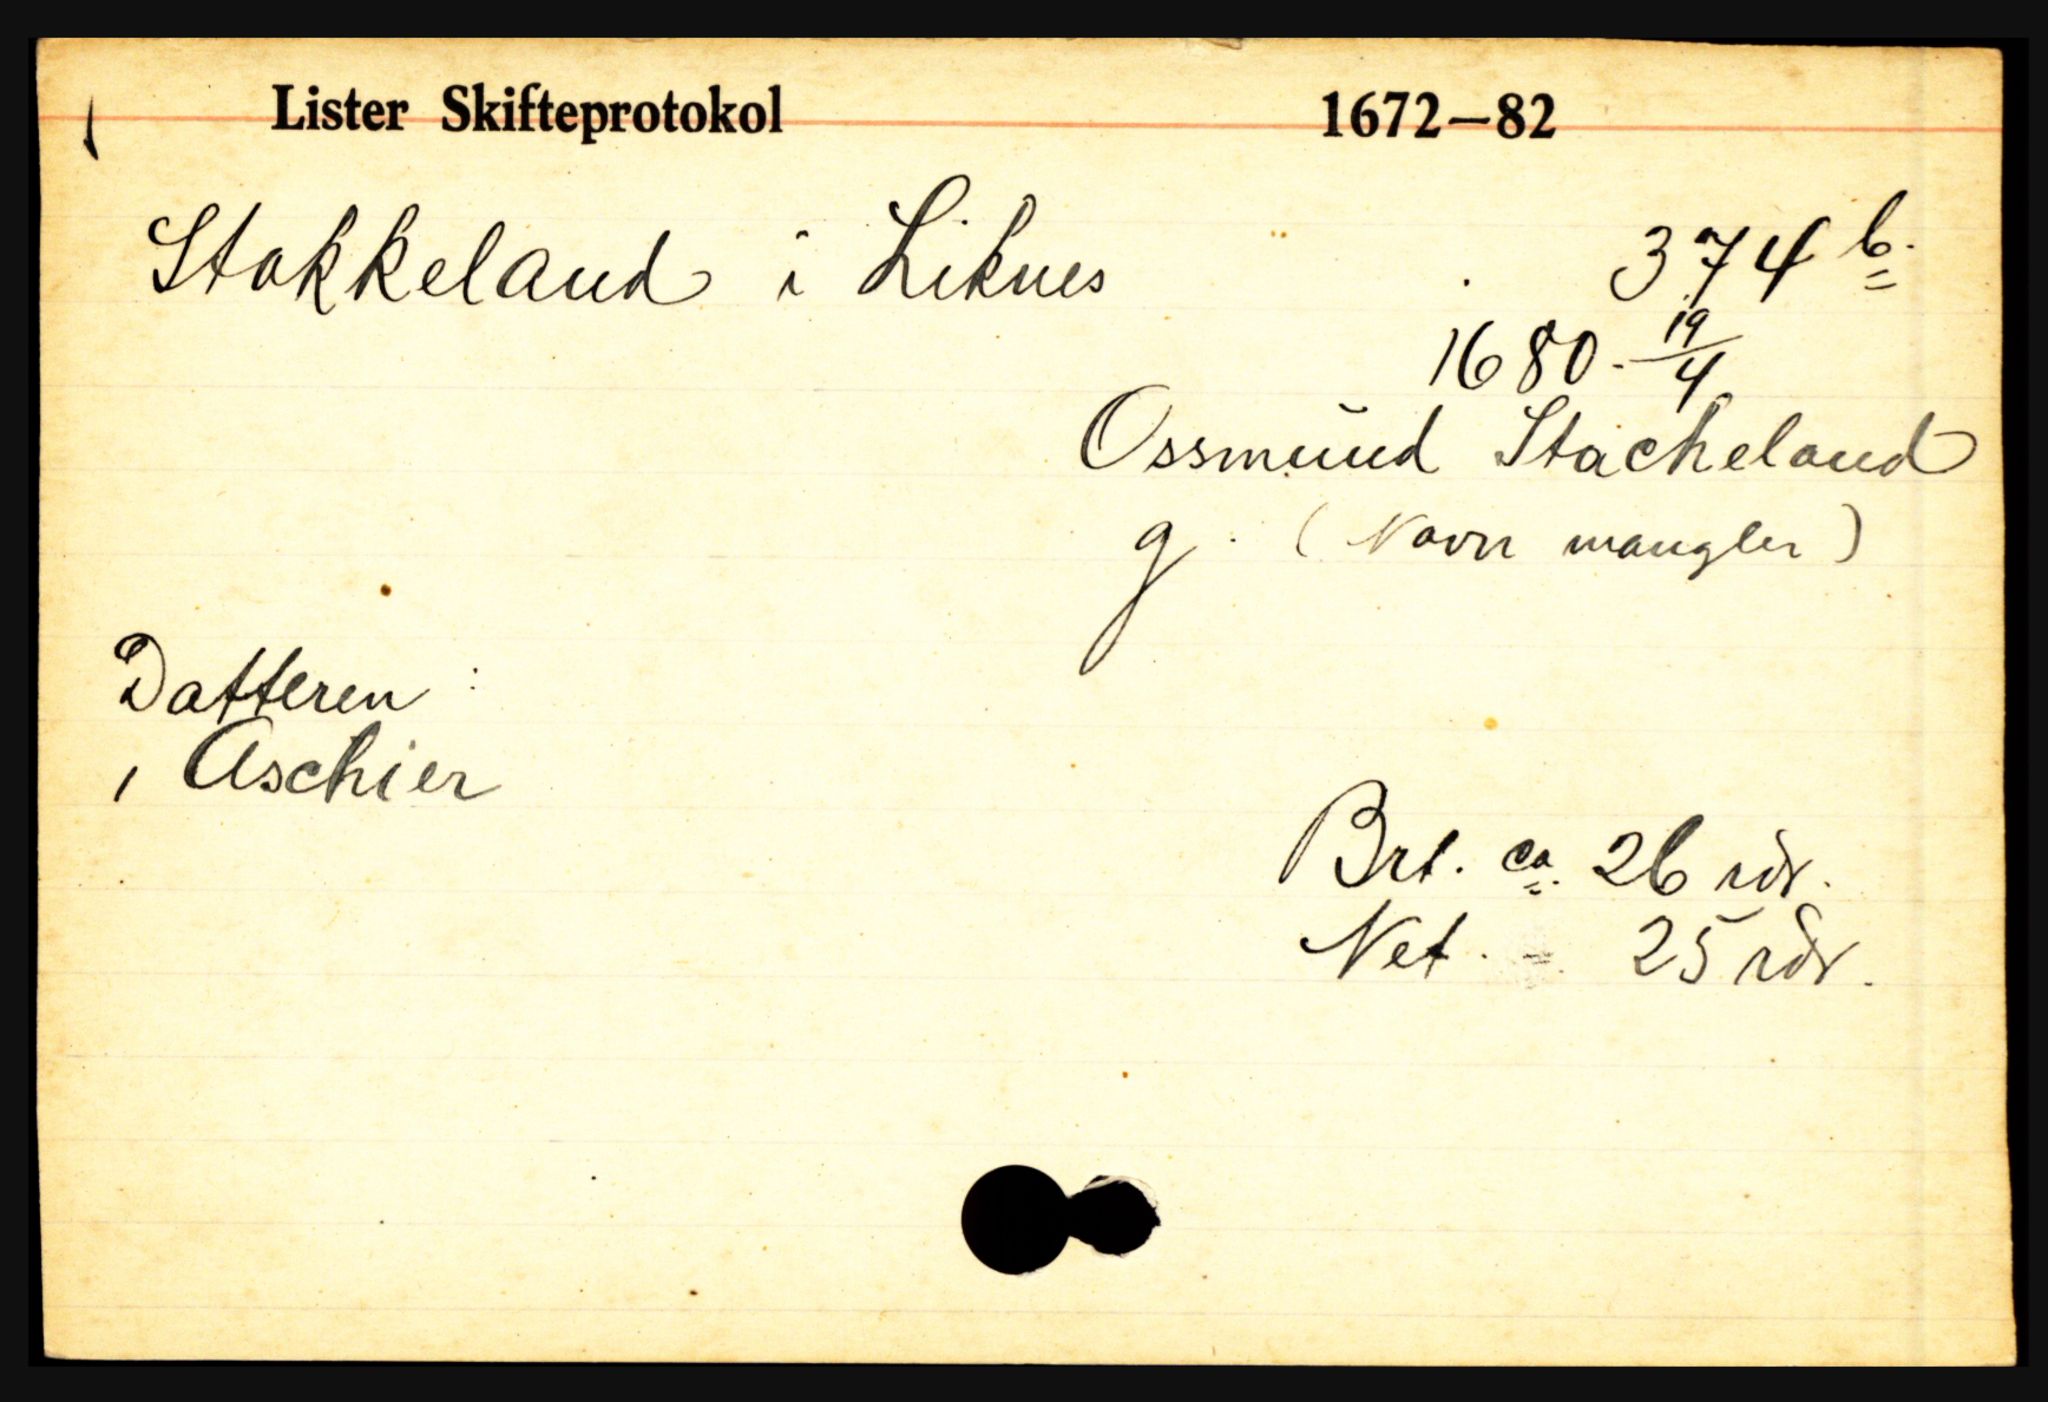 Lister Skifteprotokol 1672–82
Stakkeland i Liknes 374 b.
1680. 19/4
Ossmund Stacheland
g. (Navn mangler)
Datteren :
1 Aschier
Brt. ca. 26 rdr.
Net. = 25 rdr.